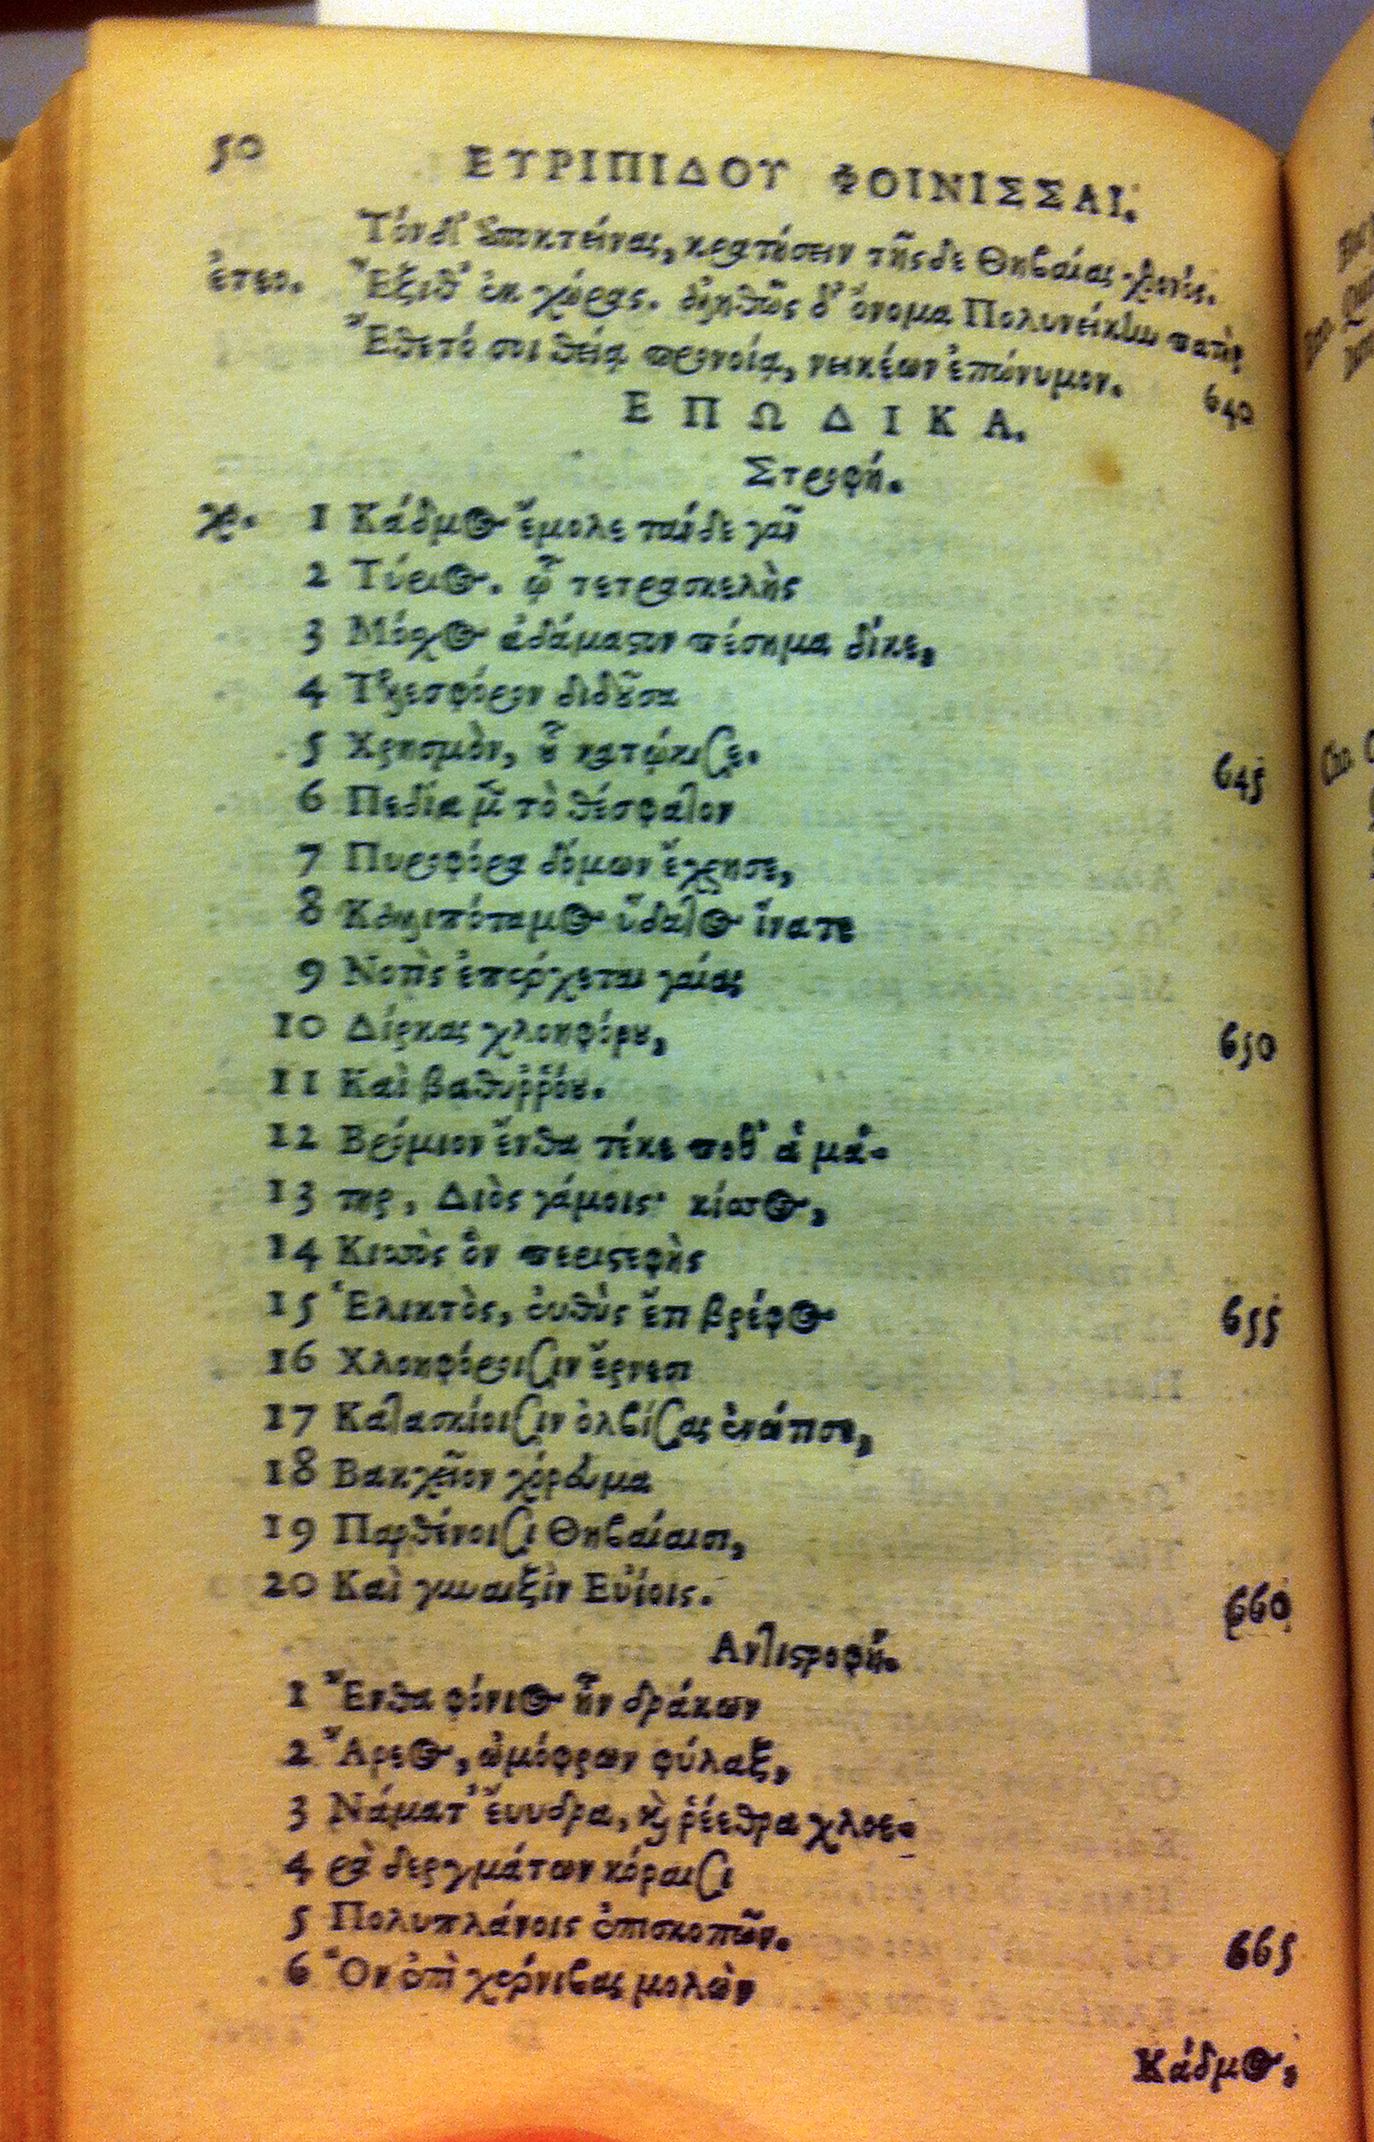 50 ΕΥΡΙΠΙΔΟΥ ΦΟΙΝΙΣΣΑΙ.
Τόνδ' ἀποκτείνας, κρατήσειν τῆσδε Θηβαίας χθονός.
ἐτεο. Ἔξιθ' ἐκ χώρας. ἀληθῶς δ' ὄνομα Πολυνείκην πατὴρ
Ἔθετό σοι θείᾳ προνοίᾳ, νεικέων ἐπώνυμον. 640
ΕΠΩΔΙΚΑ.
Στροφή.
χο. 1 Κάδμος ἔμολε τάνδε γᾶν
2 Τύριος. ᾧ τετρασκελὴς
3 Μόσχος ἀδάμαστον πέσημα δίκε,
4 Τελεσφόρον διδοῦσα
5 Χρησμὸν, οὗ κατῴκισε. 645
6 Πεδία μὲν τὸ θέσφατον
7 Πυροφόρα δόμων ἔχρησε,
8 Καλλιπόταμος ὕδατος ἵνα τε
9 Νοτὶς ἐπέρχεται γαίας
10 Δίρκας χλοηφόρου, 650
11 Καὶ βαθυῤῥόου.
12 Βρόμιον ἔνθα τέκε ποθ' ἁ μά-
13 τηρ, Διὸς γάμοις· κίσσος,
14 Κισσὸς ὃν περιστεφὴς
15 Ἑλικτὸς, εὐθὺς ἔτι βρέφος 655
16 Χλοηφόροισιν ἔρνεσι
17 Κατασκίοισιν ὀλβίσας ἐνώτισε,
18 Βακχεῖον χόρευμα
19 Παρθένοισι Θηβαίαισι,
20 Καὶ γυναιξὶν Εὐίοις. 660
Αντιστροφή.
1 Ἔνθα φόνιος ἦν δράκων
2 Ἄρεος, ὠμόφρων φύλαξ,
3 Νάματ' ἔνυδρα, καὶ ῥέεθρα χλοε-
4 ρὰ δεργμάτων κόραισι
5 Πολυπλάνοις ἐπισκοπῶν. 665
6 Ὃν ἐπὶ χέρνιβας μολὼν
Κάδμος,